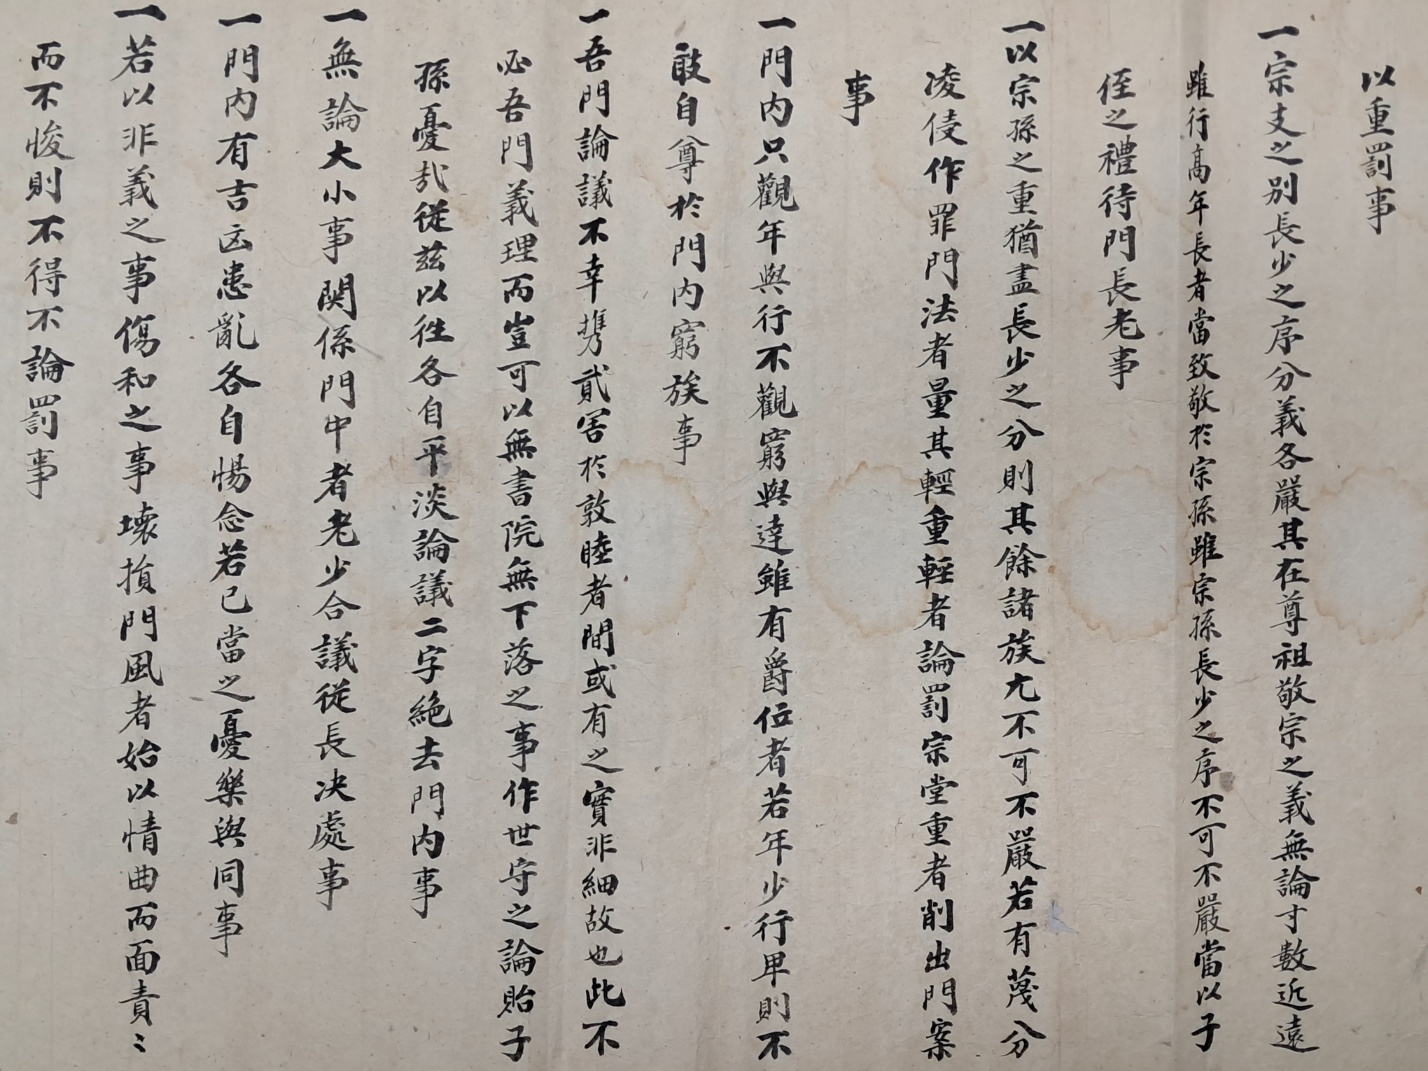 以重罰事
一宗支之別長少之序分義各嚴其在尊祖敬宗之義無論寸數近遠
雖行高年長者當致敬於宗孫雖宗孫長少之序不可不嚴當以子
侄之禮待門長老事
一以宗孫之重猶盡長少之分則其餘諸族尤不可不嚴若有蔑分
凌侵作罪門法者量其輕重輕者論罰宗堂重者削出門案
事
一門內只觀年與行不觀窮與達雖有爵位者若年少行卑則不
敢自尊於門內窮族事
一吾門論議不幸携貳害於敦睦者間或有之實非細故也此不
必吾門義理而豈可以無書院無下落之事作世守之論貽子
孫憂哉從茲以徃各自平淡論議二字絶去門內事
一無論大小事関係門中者老少合議從長决處事
一門內有吉凶患亂各自惕念若己當之憂樂與同事
一若以非義之事傷和之事壞損門風者始以情曲而面責〻
而不悛則不得不論罰事